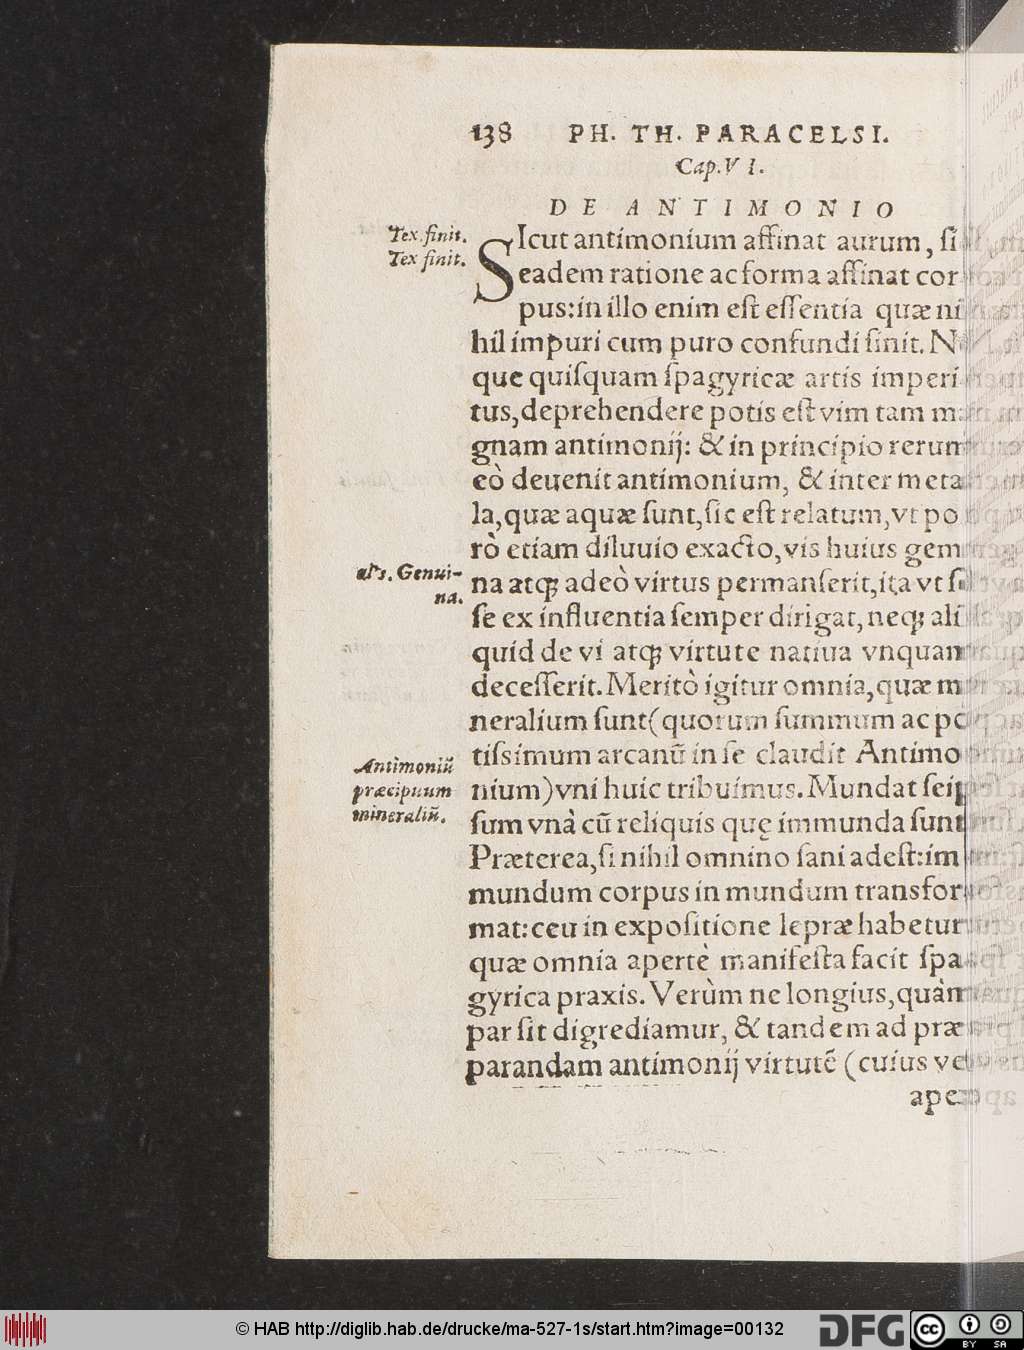 138 PH. TH. PARACELSI.
Cap. VI.
DE ANTIMONIO
Tex. finit.
Tex finit.
SIcut antimonium affinat aurum, si
eadem ratione ac forma affinat cor
pus: in illo enim est essentia quæ ni
hil impuri cum puro confundi sinit. Ne
que quisquam spagyricæ artis imperi
tus, deprehendere potis est vim tam ma
gnam antimonij: & in principio rerum
eò deuenit antimonium, & inter metal
la, quæ aquæ sunt, sic est relatum, vt po
rò etiam diluuio exacto, vis huius gem
als. Genui-
na.
na atq; adeò virtus permanserit, ita vt
se ex influentia semper dirigat, neq; ali
quid de vi atq; virtute natiua vnquam
decesserit. Meritò igitur omnia, quæ mi
neralium sunt (quorum summum ac po
tissimum arcanũ in se claudit Antimo
Antimoniũ
præcipuum
mineraliũ.
nium) vni huic tribuimus. Mundat seip
sum vnà cũ reliquis quę immunda sunt
Præterea, si nihil omnino sani adest: im
mundum corpus in mundum transfor
mat: ceu in expositione lepræ habetur
quæ omnia apertè manifesta facit spa
gyrica praxis. Verùm ne longius, quàm
par sit digrediamur, & tandem ad præ
parandam antimonij virtutẽ (cuius ve
ape
© HAB http://diglib.hab.de/drucke/ma-527-1s/start.htm?image=00132
DFG
cc
BY SA